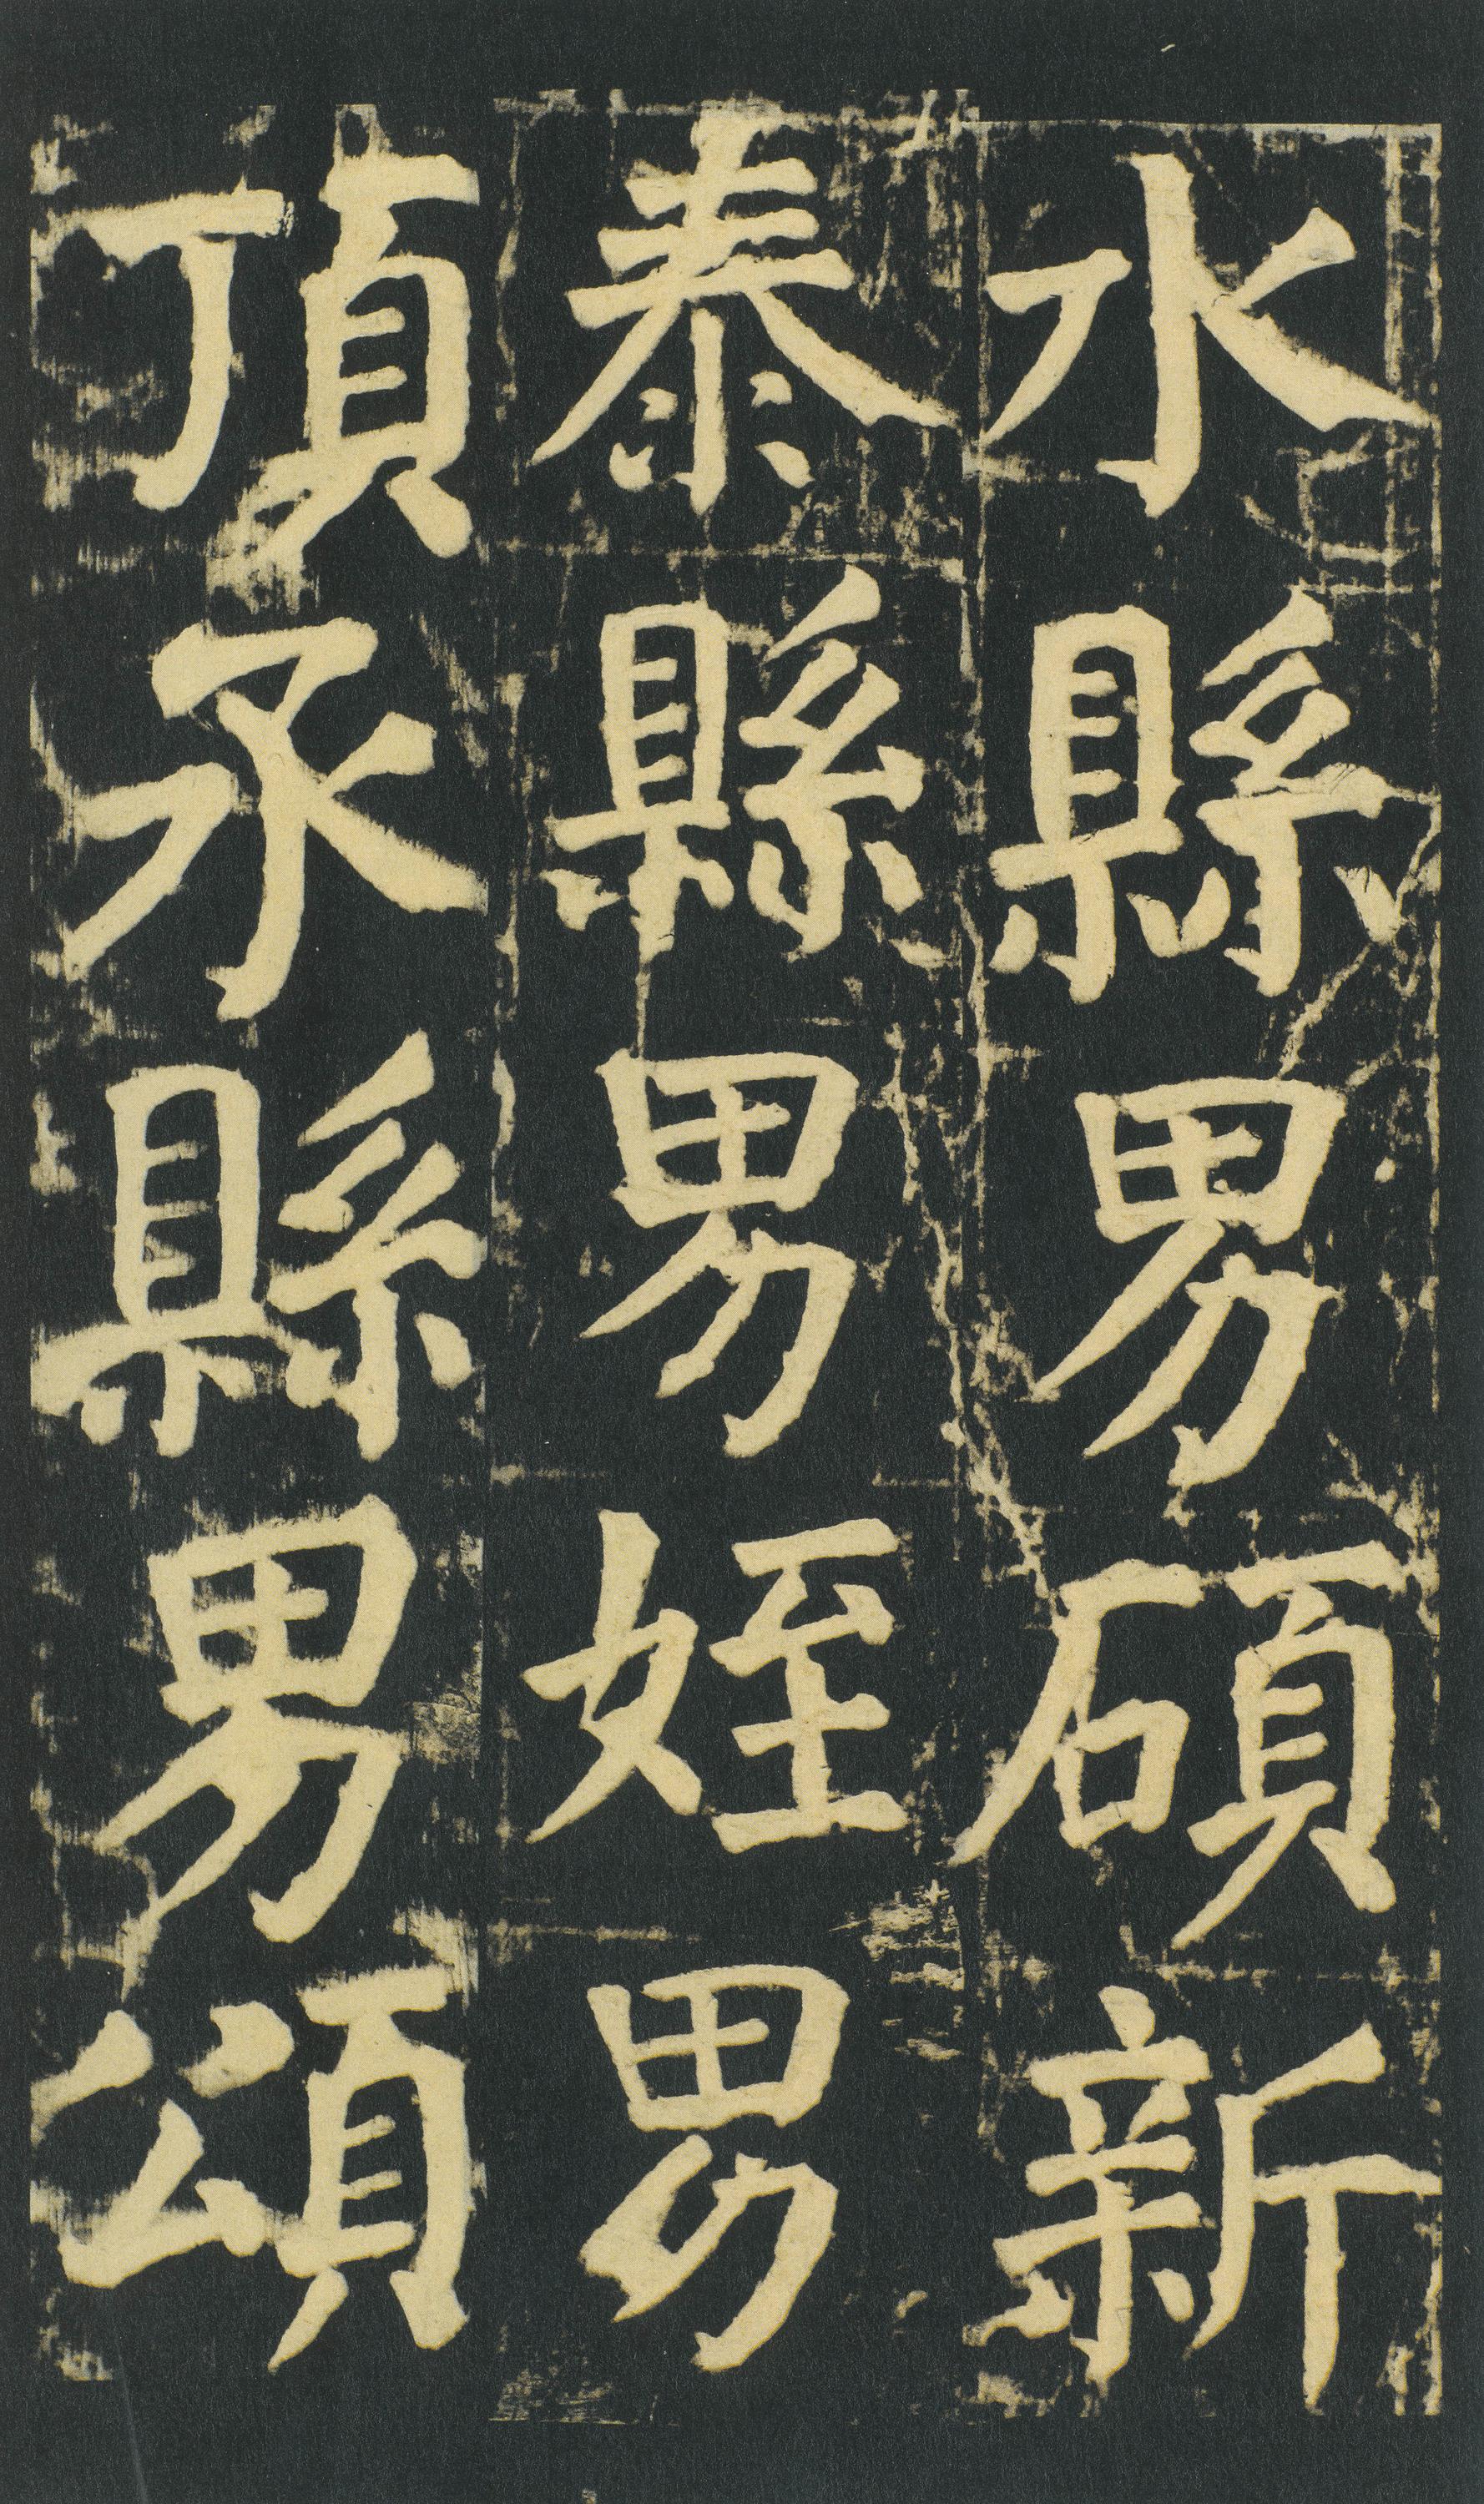 水縣男碩新
泰縣男姪男
頂氶縣男頌